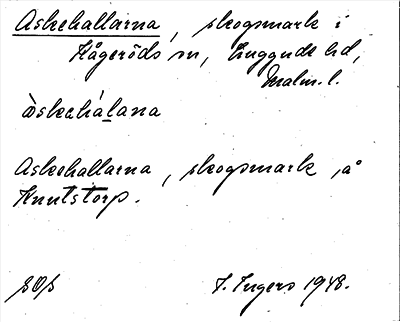 Askehallarna, skogsmark i
Kågeröds sn, Luggude hd,
Malm. l.
àskahálana
Askehallarna, skogsmark på
Knutstorp.
I. Ingers 1948.